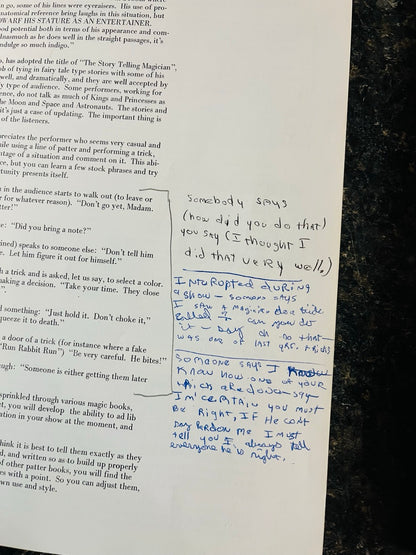 n go, some of his lines were eyeraisers. His use of pro-
natomical reference bring laughs in this situation, but
DWARF HIS STATURE AS AN ENTERTAINER.
ood potential both in terms of his appearance and com-
Inasmuch as he does well in the straight passages, it's
ndulge so much indigo."
o, has adopted the title of "The Story Telling Magician",
b of tying in fairy tale type stories with some of his
well, and dramatically, and they are well accepted by
y type of audience. Some performers, working for
ence, do not talk as much of Kings and Princesses as
he Moon and Space and Astronauts. The stories and
it's just a case of updating. The important thing is
of the listeners.
preciates the performer who seems very casual and
while using a line of patter and performing a trick,
ntage of a situation and comment on it. This abi-
ce, but you can learn a few stock phrases and try
tunity presents itself.
n in the audience starts to walk out (to leave or
r for whatever reason). "Don't go yet, Madam.
tter!"
e: "Did you bring a note?"
ined) speaks to someone else: "Don't tell him
e. Let him figure it out for himself."
h a trick and is asked, let us say, to select a color.
aking a decision. "Take your time. They close
".
d something: "Just hold it. Don't choke it,"
queeze it to death."
a door of a trick (for instance where a fake
"Run Rabbit Run") "Be very careful. He bites!"
ough: "Someone is either getting them later
sprinkled through various magic books,
et, you will develop the ability to ad lib
ation in your show at the moment, and
hink it is best to tell them exactly as they
d, and written so as to build up properly
of other patter books, you will find the
es with a point. So you can adjust them,
own use and style.
somebody says
(how did you do that)
you say (I thought I
did that very well.)
Interrupted during
a show - someone says
I saw a magician do a trick
called ? can you do
it - say oh no that -
was one of last yrs. tricks
Someone says I
Know how one of your
tricks are done - say
I'm certain you must
Be Right, If He
say pardon me I must
tell you I always tell
everyone he is right,